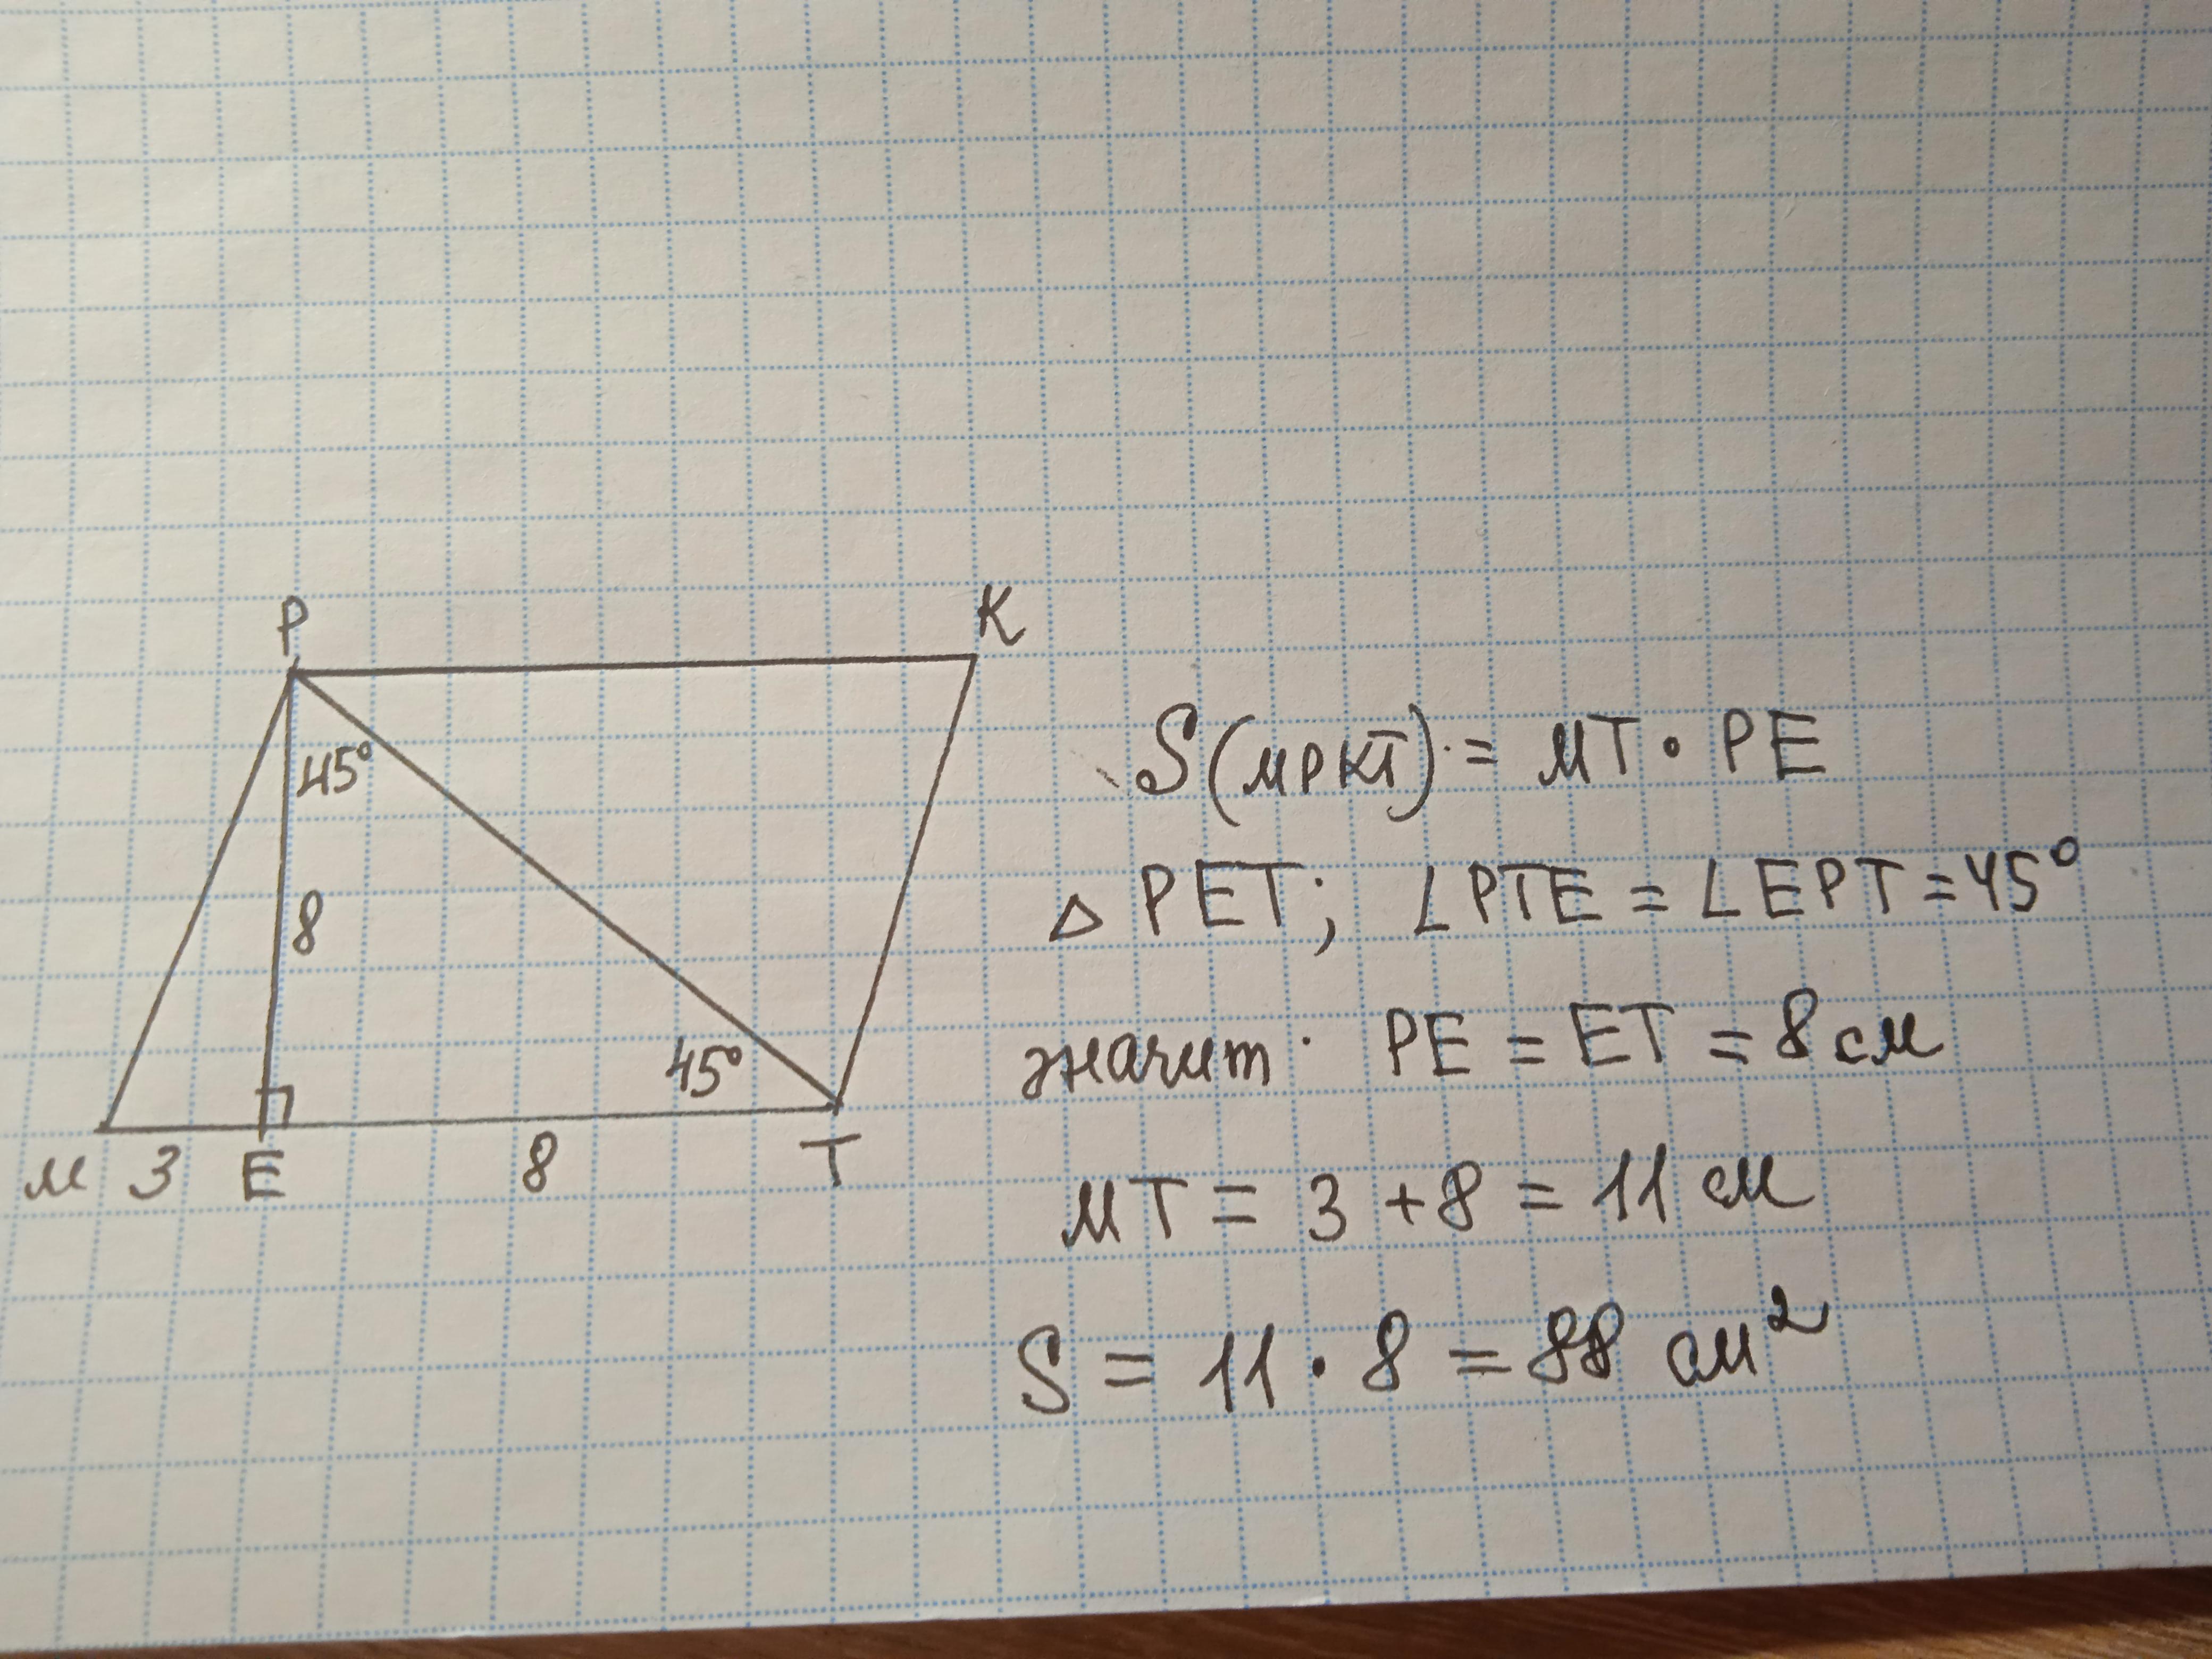 P
K
45°
8
45°
М 3 E 8 T
S(МРКТ) = МТ · PE
△ PET; ∠PTE = ∠EPT = 45°
значит PE = ET = 8 см
МТ = 3 + 8 = 11 см
S = 11 · 8 = 88 см²